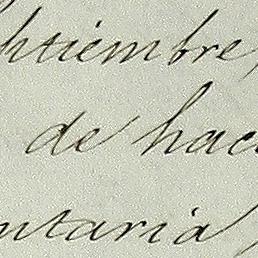 ptiembre,
de hac
ntaria